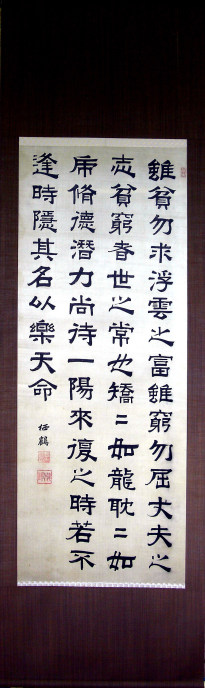 雖貧勿求浮雲之富雖窮勿屈丈夫之
志貧窮者世之常也矯〻如龍耽〻如
虎脩德潛力尚待一陽來復之時若不
逢時隱其名以樂天命
鶴